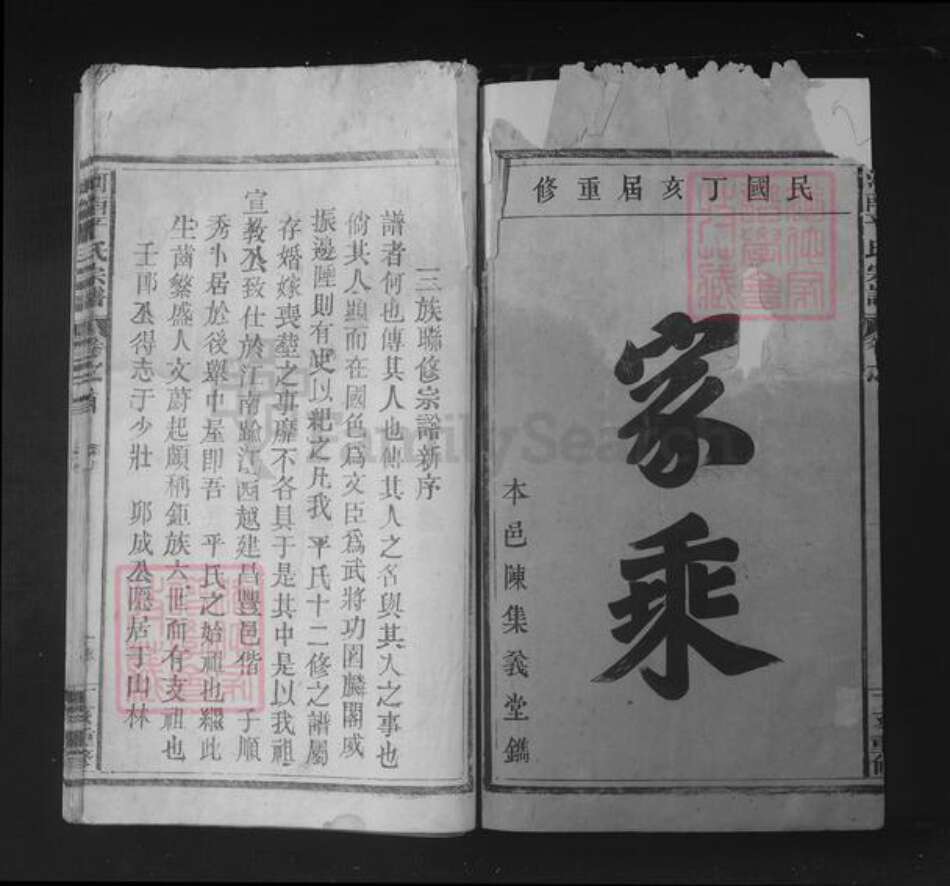 民國丁亥屆重修
家乘
本邑陳集義堂鐫
三族聯修宗譜新序
譜者何也傳其人也傳其人之名與其人之事也
倘其人顯而在國色為文臣為武將功圖麟閣威
振邊陲則有史以紀之凡我 平氏十二修之譜屬
存婚嫁喪塟之事靡不各具于是其中是以我祖
宣教公致仕於江南踰江西越建昌豐邑偕 子順
秀卜居於後墾中屋即吾 平氏之始祖也繼此
生齒繁盛人文蔚起頗稱鉅族六世而有支祖也
壬郎公得志于少壯 郭成公隱居于山林
河南平氏宗譜
FamilySearch